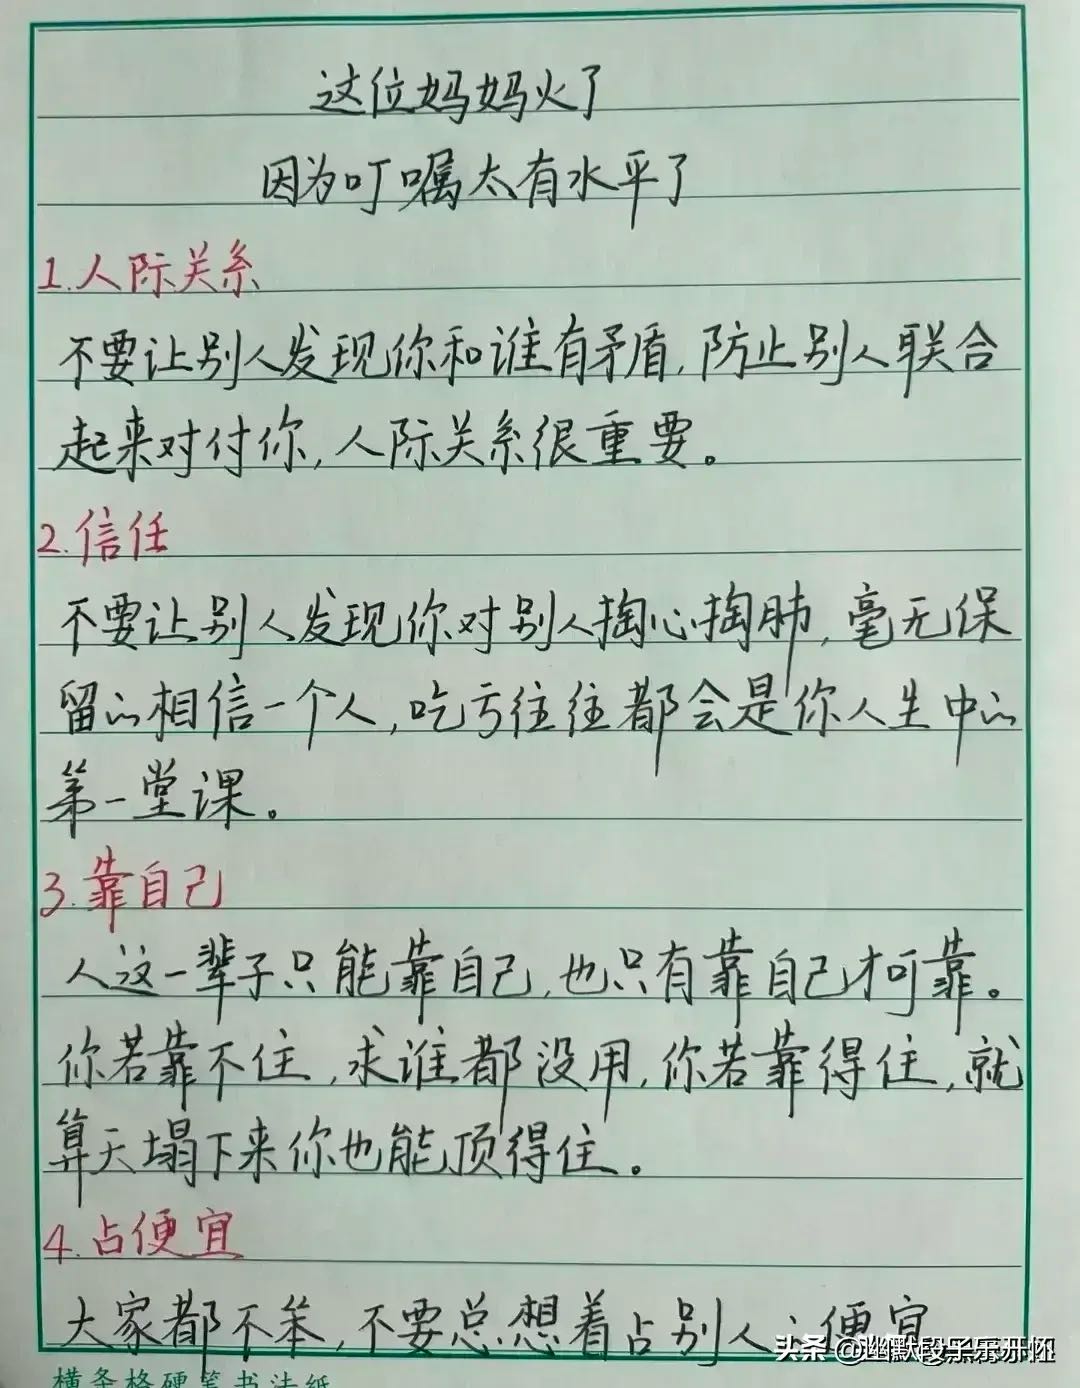 这位妈妈火了
因为叮嘱太有水平了
1.人际关系
不要让别人发现你和谁有矛盾,防止别人联合
起来对付你,人际关系很重要。
2.信任
不要让别人发现你对别人掏心掏肺,毫无保
留的相信一个人,吃亏往往都会是你人生中的
第一堂课。
3.靠自己
人这一辈子只能靠自己,也只有靠自己才可靠。
你若靠不住,求谁都没用,你若靠得住,就
算天塌下来你也能顶得住。
4.占便宜
大家都不笨,不要总想着占别人的便宜
头条 @幽默段子乐开怀
横条格硬笔书法纸